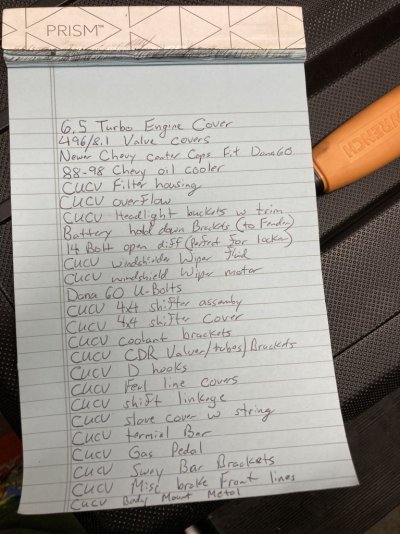 PRISM™
6.5 Turbo Engine Cover
496/8.1 Valve covers
Newer Chevy center Caps Fit Dana60
88-98 Chevy oil cooler
CUCV Filter housing
CUCV overflow
CUCV Headlight buckets w trim
Battery hold down Brackets (to Fender)
14 Bolt open diff (perfect for locker)
CUCV Wiper fluid
CUCV windshield Wiper motor
Dana 60 U-Bolts
CUCV 4x4 shifter assamby
CUCV 4x4 shifter cover
CUCV coolant brackets
CUCV CDR Valves/tubes/Brackets
CUCV D hooks
CUCV line covers
CUCV shift linkage
CUCV cover w string
CUCV Bar
CUCV Gas Pedal
CUCV Sway Bar Brackets
CUCV Misc brake Front lines
CUCV Body Mount Metal
WRENCH